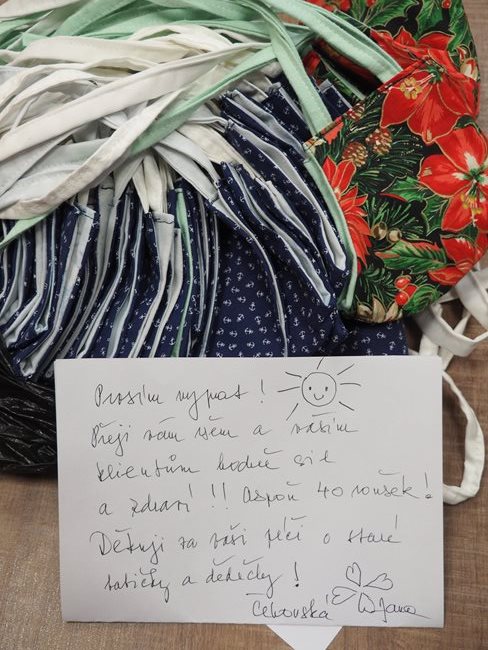 Prosím vyprat!
Přeji vám všem a vašim
klientům hodně sil
a zdraví!!! Aspoň 40 roušek!
Děkuji za vaši péči o staré
babičky a dědečky!
Jana